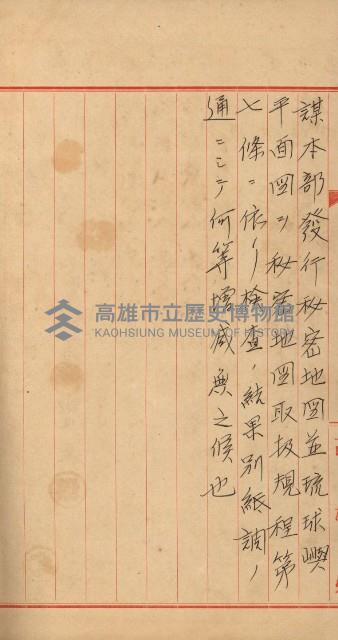 謀本部發行秘密地図並琉球嶼
平面図ヲ秘密地図取扱規程第
七條ニ依リ検査ノ結果別紙調ノ
通ニシテ何等増減無之候也
高雄市立歷史博物館
KAOHSIUNG MUSEUM OF HISTORY